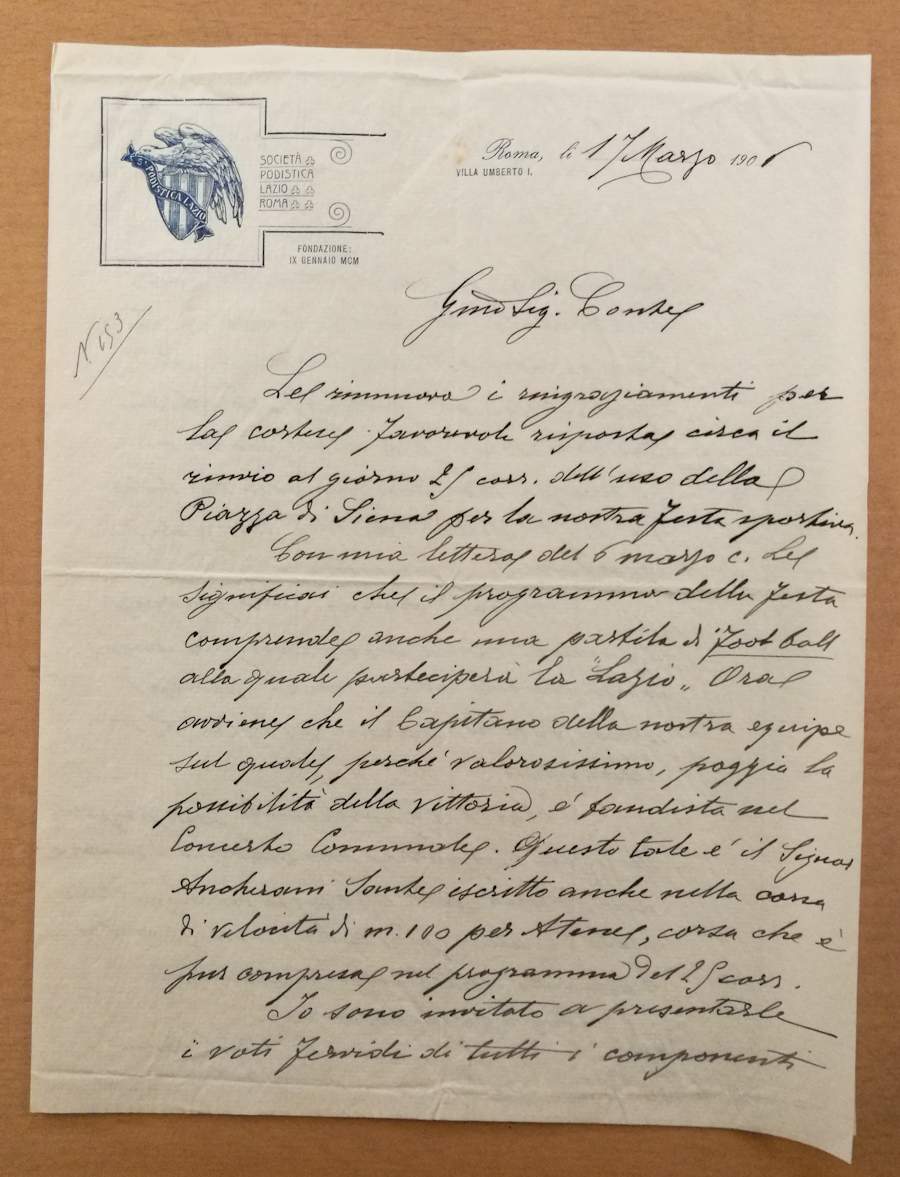 S. PODISTICA LAZIO
SOCIETÀ
PODISTICA
LAZIO
ROMA
FONDAZIONE:
IX GENNAIO MCM
Roma, li 17 Marzo 1906
VILLA UMBERTO I.
N. 153
Gmo Sig. Conte
Le rinnuovo i ringraziamenti per
la cortese favorevole risposta circa il
rinvio al giorno 25 corr. dell'uso della
Piazza di Siena per la nostra festa sportiva.
Con mia lettera del 6 marzo c. Le
significai che il programma della festa
comprende anche una partita di "Foot ball
alla quale parteciperà la "Lazio„ Ora
avviene che il Capitano della nostra equipe
sul quale, perché valorosissimo, poggia la
possibilità della vittoria, é bandista nel
Concerto Comunale. Questo tale é il Signor
Ancherani Sante iscritto anche nella corsa
di velocità di m. 100 per Atene, corsa che è
pur compresa nel programma del 25 corr.
Io sono invitato a presentarle
i voti fervidi di tutti i componenti